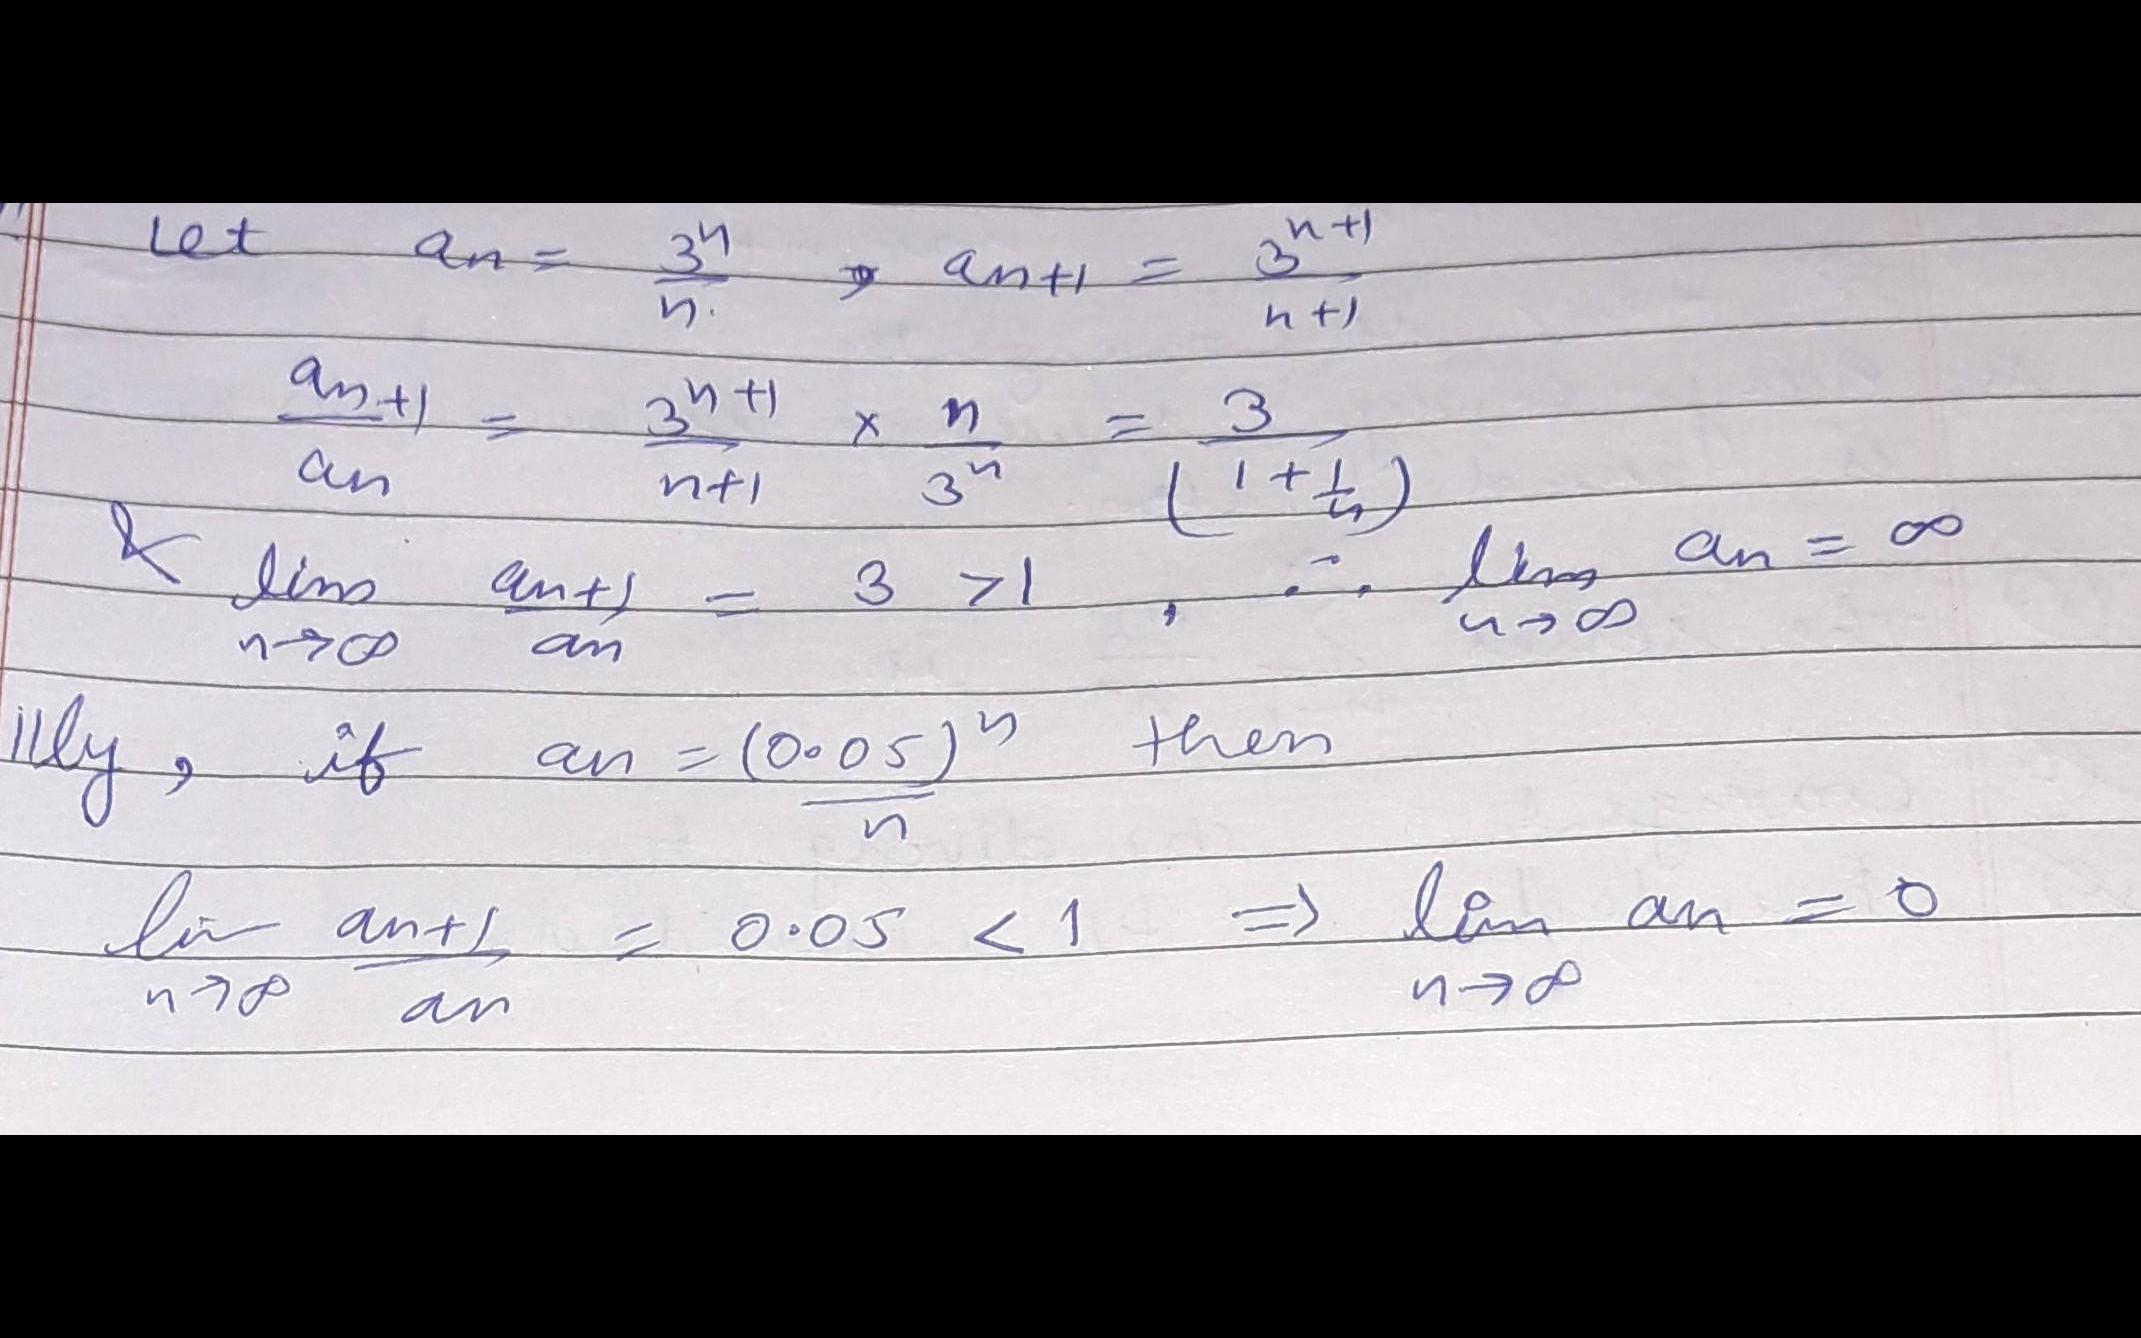 Let an = 3^n / n , an+1 = 3^(n+1) / n+1
an+1 / an = 3^(n+1) / n+1 × n / 3^n = 3 / (1 + 1/n)
& lim n→∞ an+1 / an = 3 > 1 , ∴ lim n→∞ an = ∞
illy, if an = (0.05)^n / n then
lim n→∞ an+1 / an = 0.05 < 1 ⇒ lim n→∞ an = 0